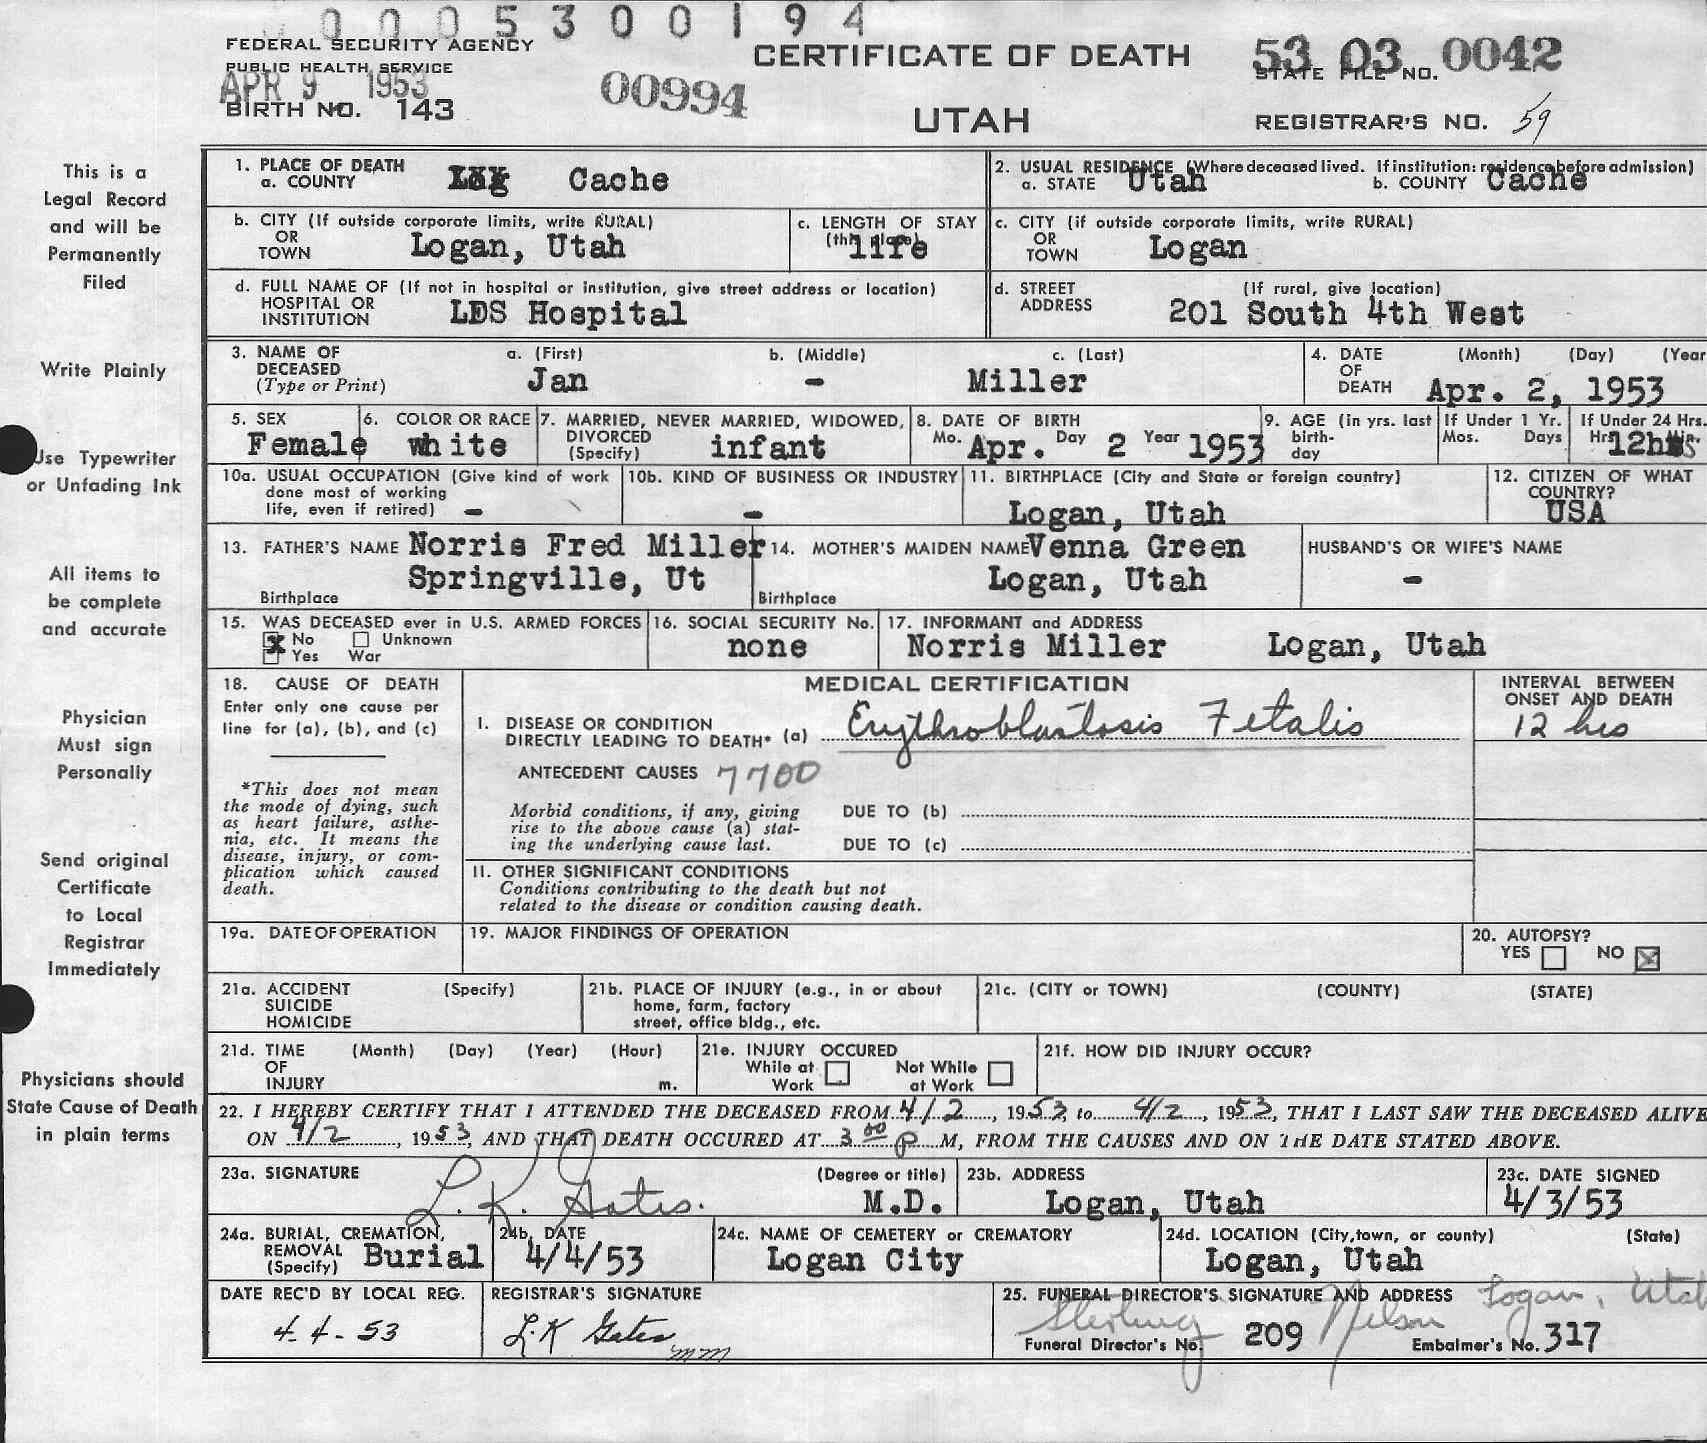 0 0 0 5 3 0 0 1 9 4
FEDERAL SECURITY AGENCY
PUBLIC HEALTH SERVICE
APR 9 1953
BIRTH NO. 143
00994
CERTIFICATE OF DEATH
UTAH
53 03 0042
STATE FILE NO.
REGISTRAR'S NO. 59
This is a
Legal Record
and will be
Permanently
Filed
Write Plainly
Use Typewriter
or Unfading Ink
All items to
be complete
and accurate
Physician
Must sign
Personally
Send original
Certificate
to Local
Registrar
Immediately
Physicians should
State Cause of Death
in plain terms
1. PLACE OF DEATH
a. COUNTY Cache
2. USUAL RESIDENCE (Where deceased lived. If institution: residence before admission)
a. STATE Utah b. COUNTY Cache
b. CITY (If outside corporate limits, write RURAL)
OR
TOWN Logan, Utah
c. LENGTH OF STAY
(this place) life
c. CITY (if outside corporate limits, write RURAL)
OR
TOWN Logan
d. FULL NAME OF (If not in hospital or institution, give street address or location)
HOSPITAL OR
INSTITUTION LDS Hospital
d. STREET (If rural, give location)
ADDRESS 201 South 4th West
3. NAME OF DECEASED (Type or Print)
a. (First) b. (Middle) c. (Last)
Jan - Miller
4. DATE OF DEATH (Month) (Day) (Year
Apr. 2, 1953
5. SEX
Female
6. COLOR OR RACE
white
7. MARRIED, NEVER MARRIED, WIDOWED,
DIVORCED
(Specify) infant
8. DATE OF BIRTH
Mo. Apr. Day 2 Year 1953
9. AGE (in yrs. last
birth-
day
If Under 1 Yr.
Mos. Days
If Under 24 Hrs.
Hrs. 12hrs Min.
10a. USUAL OCCUPATION (Give kind of work
done most of working
life, even if retired) -
10b. KIND OF BUSINESS OR INDUSTRY
-
11. BIRTHPLACE (City and State or foreign country)
Logan, Utah
12. CITIZEN OF WHAT
COUNTRY?
USA
13. FATHER'S NAME Norris Fred Miller
Springville, Ut
Birthplace
14. MOTHER'S MAIDEN NAME Venna Green
Logan, Utah
Birthplace
HUSBAND'S OR WIFE'S NAME
-
15. WAS DECEASED ever in U.S. ARMED FORCES
x No Unknown
Yes War
16. SOCIAL SECURITY No.
none
17. INFORMANT and ADDRESS
Norris Miller Logan, Utah
18. CAUSE OF DEATH
Enter only one cause per
line for (a), (b), and (c)
*This does not mean
the mode of dying, such
as heart failure, asthe-
nia, etc. It means the
disease, injury, or com-
plication which caused
death.
MEDICAL CERTIFICATION
I. DISEASE OR CONDITION
DIRECTLY LEADING TO DEATH* (a) Erythroblastosis Fetalis
ANTECEDENT CAUSES 7700
Morbid conditions, if any, giving
rise to the above cause (a) stat-
ing the underlying cause last.
DUE TO (b)
DUE TO (c)
II. OTHER SIGNIFICANT CONDITIONS
Conditions contributing to the death but not
related to the disease or condition causing death.
INTERVAL BETWEEN
ONSET AND DEATH
12 hrs
19a. DATE OF OPERATION
19. MAJOR FINDINGS OF OPERATION
20. AUTOPSY?
YES NO x
21a. ACCIDENT (Specify)
SUICIDE
HOMICIDE
21b. PLACE OF INJURY (e.g., in or about
home, farm, factory
street, office bldg., etc.
21c. (CITY or TOWN) (COUNTY) (STATE)
21d. TIME (Month) (Day) (Year) (Hour)
OF
INJURY m.
21e. INJURY OCCURED
While at Work
Not While at Work
21f. HOW DID INJURY OCCUR?
22. I HEREBY CERTIFY THAT I ATTENDED THE DECEASED FROM 4/2, 1953, to 4/2, 1953, THAT I LAST SAW THE DECEASED ALIVE
ON 4/2, 1953, AND THAT DEATH OCCURED AT 3 00 P M, FROM THE CAUSES AND ON THE DATE STATED ABOVE.
23a. SIGNATURE (Degree or title)
L. K. Gates. M.D.
23b. ADDRESS
Logan, Utah
23c. DATE SIGNED
4/3/53
24a. BURIAL, CREMATION,
REMOVAL
(Specify) Burial
24b. DATE
4/4/53
24c. NAME OF CEMETERY or CREMATORY
Logan City
24d. LOCATION (City, town, or county) (State)
Logan, Utah
DATE REC'D BY LOCAL REG.
4-4-53
REGISTRAR'S SIGNATURE
L.K Gates
mm
25. FUNERAL DIRECTOR'S SIGNATURE AND ADDRESS Logan, Utah
Sterling Nelson
Funeral Director's No. 209 Embalmer's No. 317